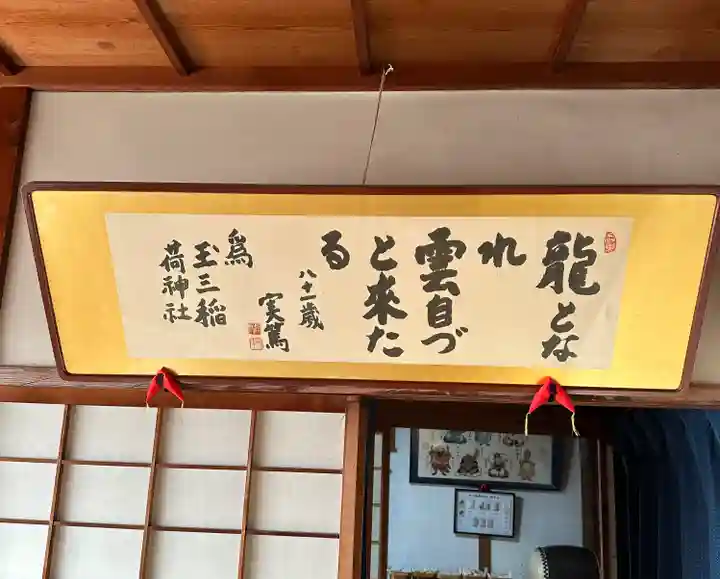 龍とな
れ
雲自づ
と來た
る
八十一歳
実篤
為
玉三稲
荷神社